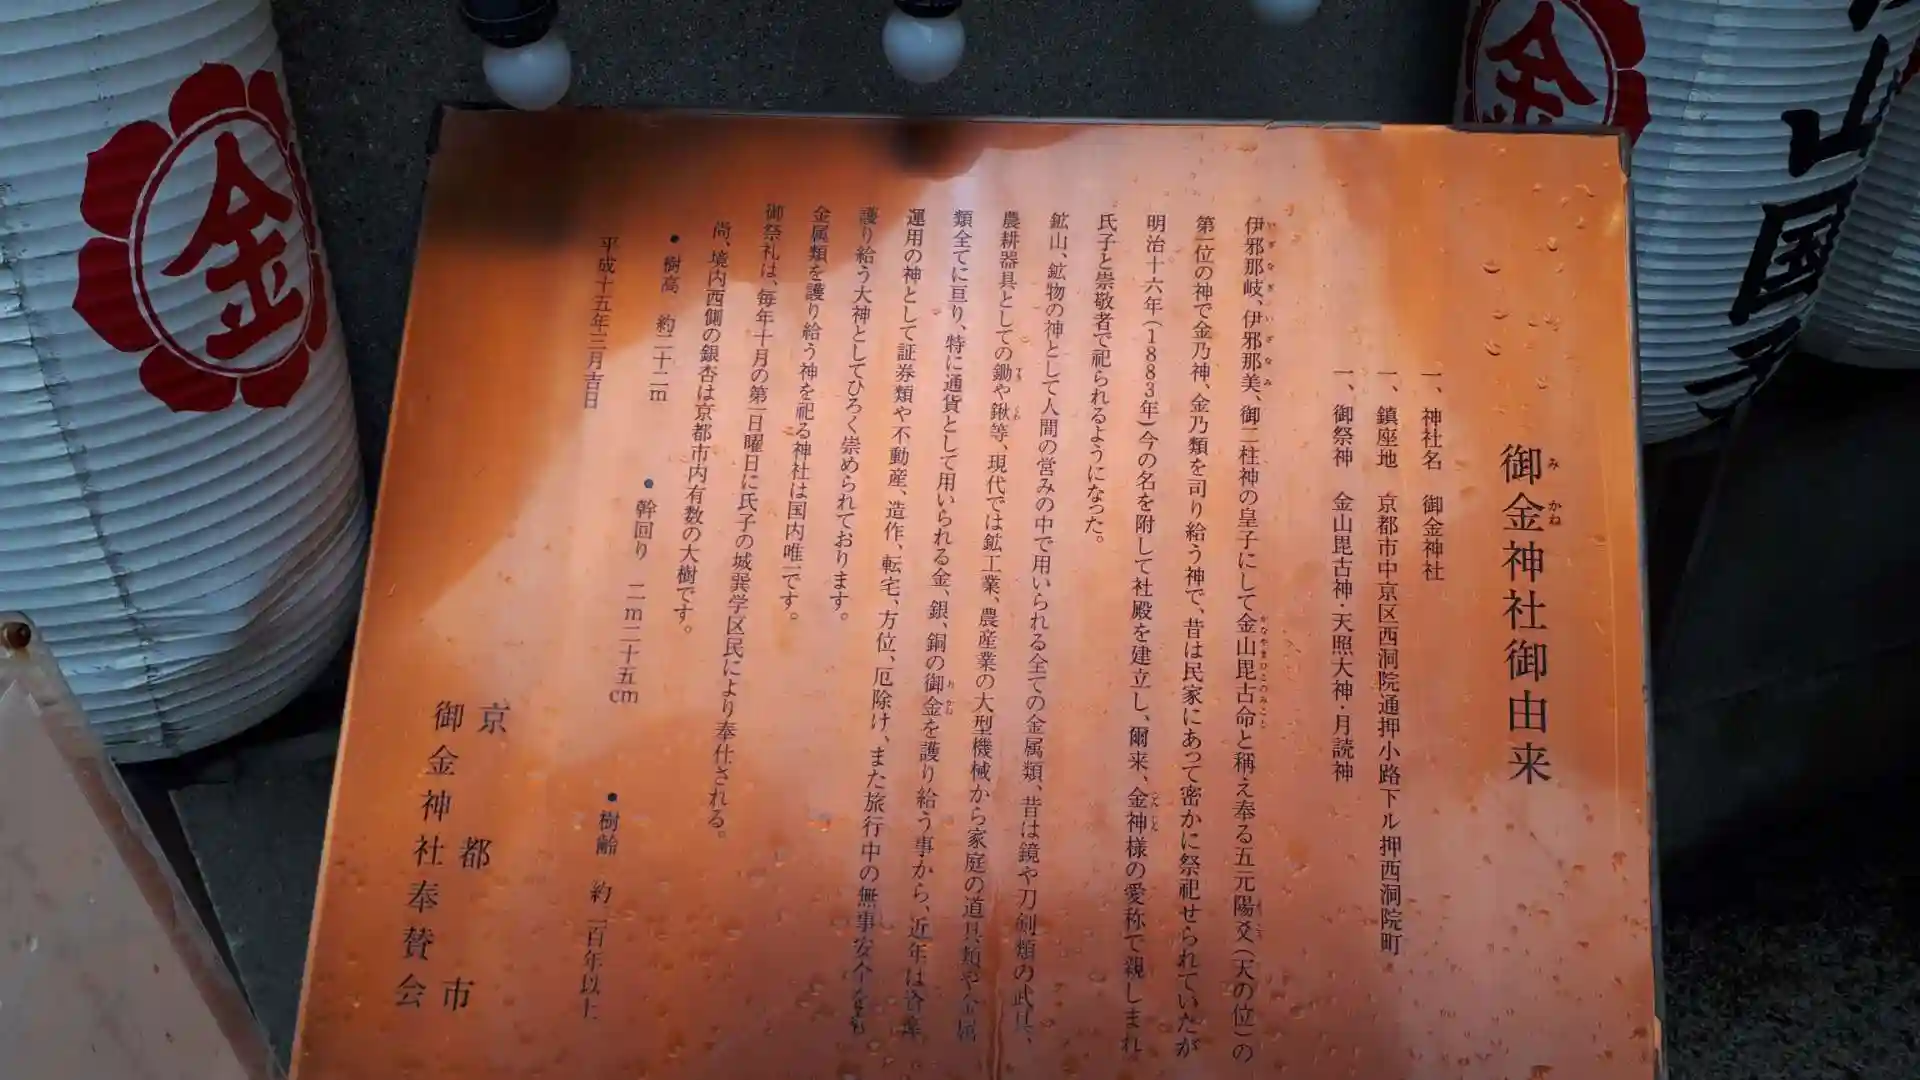 御金神社御由来
一、神社名　御金神社
一、鎮座地　京都市中京区西洞院通押小路下ル押西洞院町
一、御祭神　金山毘古神・天照大神・月読神
伊邪那岐、伊邪那美、御二柱神の皇子にして金山毘古命と称え奉る五元陽爻(天の位)の
第一位の神で金乃神、金乃類を司り給う神で、昔は民家にあって密かに祭祀せられていたが
明治十六年(1883年)今の名を附して社殿を建立し、爾来、金神様の愛称で親しまれ
氏子と崇敬者で祀られるようになった。
鉱山、鉱物の神として人間の営みの中で用いられる全ての金属類、昔は鏡や刀剣類の武具、
農耕器具としての鋤や鍬等、現代では鉱工業、農産業の大型機械から家庭の道具類や金属
類全てに亘り、特に通貨として用いられる金、銀、銅の御金を護り給う事から、近年は資産
運用の神として証券類や不動産、造作、転宅、方位、厄除け、また旅行中の無事安全を
護り給う大神としてひろく崇められております。
金属類を護り給う神を祀る神社は国内唯一です。
御祭礼は、毎年十月の第一日曜日に氏子の城巽学区民により奉仕される。
尚、境内西側の銀杏は京都市内有数の大樹です。
●樹高　約二十二m　●幹回り　二m二十五cm　●樹齢　約二百年以上
平成十五年三月吉日
京都市
御金神社奉賛会
金
金
山国